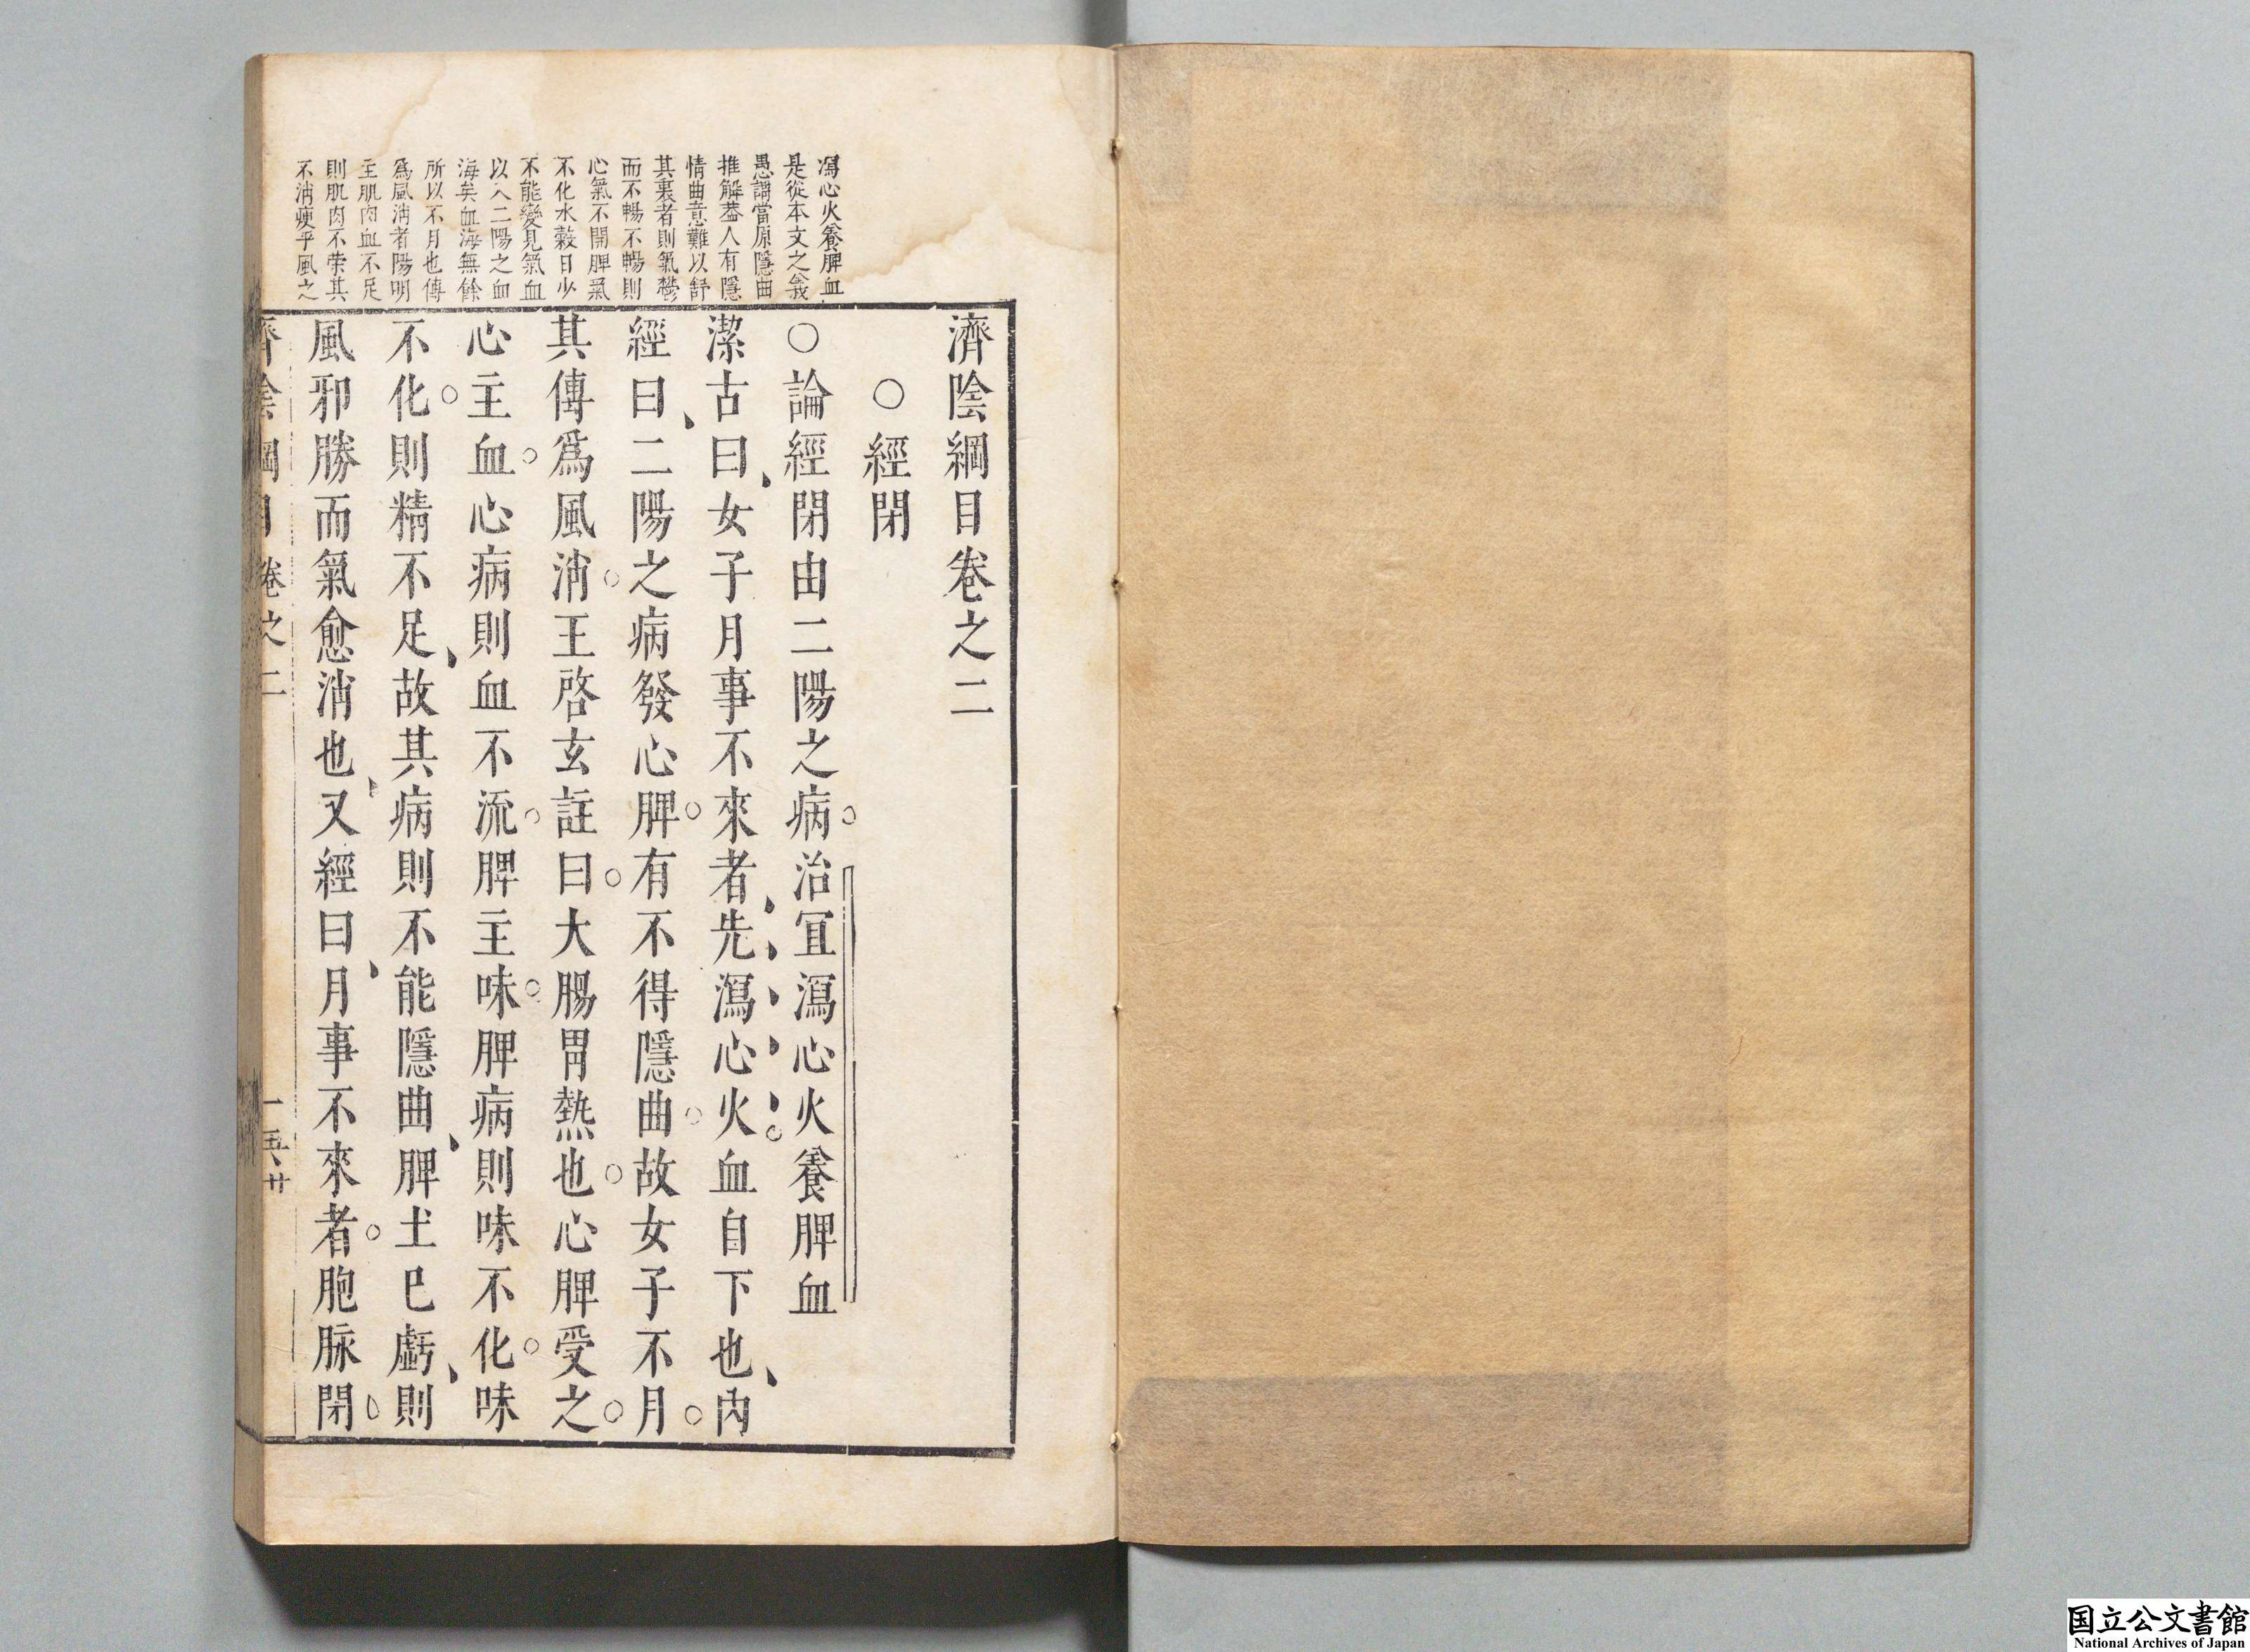 濟陰綱目卷之二
○經閉
○論經閉由二陽之病治宜瀉心火養脾血
潔古曰女子月事不來者先瀉心火血自下也內
經曰二陽之病發心脾有不得隱曲故女子不月
其傳爲風消王啓玄註曰大腸胃熱也心脾受之
心主血心病則血不流脾主味脾病則味不化味
不化則精不足故其病則不能隱曲脾土已虧則
風邪勝而氣愈消也又經曰月事不來者胞脉閉
瀉心火養脾血
是從本文之義
愚謂當原隱曲
推解葢人有隱
情曲意難以舒
其裏者則氣鬱
而不暢不暢則
心氣不開脾氣
不化水穀日少
不能變見氣血
以入二陽之血
海矣血海無餘
所以不月也傳
爲風消者陽明
主肌肉血不足
則肌肉不榮其
不消瘦乎風之
濟陰綱目 卷之二
国立公文書館
National Archives of Japan